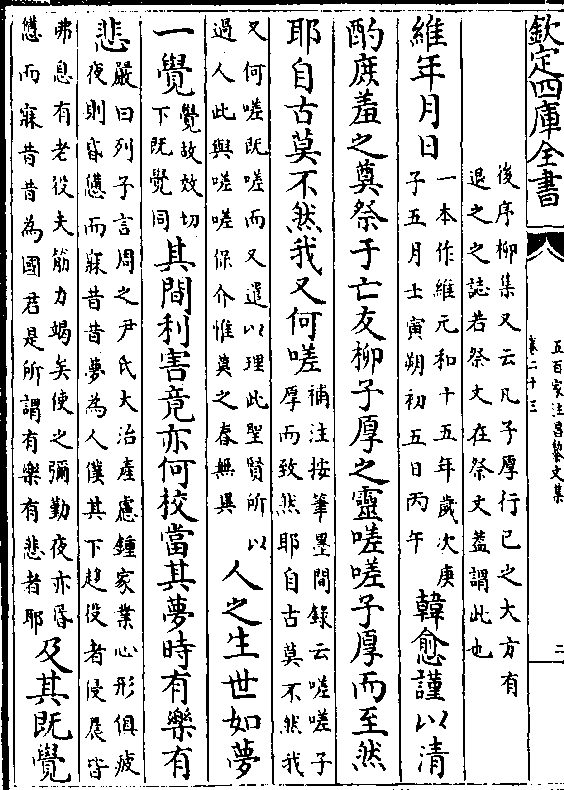 欽定四庫全書
五百家注昌黎文集
卷二十三
二
後序柳集又云凡子厚行已之大方有
退之之誌若祭文在祭文蓋謂此也
維年月日
一本作維元和十五年歲次庚
子五月壬寅朔初五日丙午
韓愈謹以清
酌庶羞之奠祭于亡友柳子厚之靈嗟嗟子厚而至然
耶自古莫不然我又何嗟
補注按筆墨間録云嗟嗟子
厚而致然耶自古莫不然我
又何嗟既嗟而又遣以理此聖賢所以
過人此與嗟嗟保介惟莫之春無異
人之生世如夢
一覺
覺故效切
下既覺同
其間利害竟亦何校當其夢時有樂有
悲
嚴曰列子言周之尹氏大治産慮鍾家業心形俱疲
夜則昏憊而寐昔昔夢為人僕其下趨役者侵晨昏
弗息有老役夫筋力竭矣使之彌勤夜亦昏
憊而寐昔昔為國君是所謂有樂有悲者耶
及其既覺